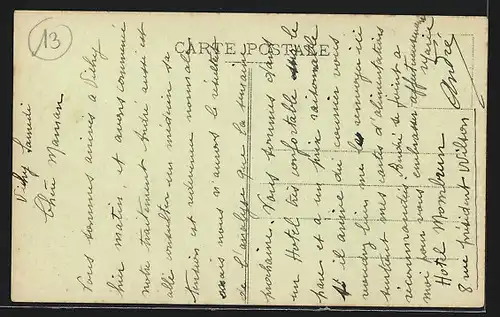 13
CARTE POSTALE
Vichy Samedi
Chère Maman
Nous sommes arrivés à Vichy
hier matin, et avons commencé
notre traitement. André aussi est
allé consulter un médecin sa
tension est redevenue normale
mais nous n'aurons le résultat
de l'analyse que la semaine
prochaine. Nous sommes dans
un Hotel très confortable le
parc et a un prix raisonnable
si il arrive du courrier vous
voudrez bien me le renvoyer ici
surtout mes cartes d'alimentations
recommandées. André se joint a
moi pour vous embrasser affectueusement
Marie
André
Hotel Mombrun
8 rue président Wilson